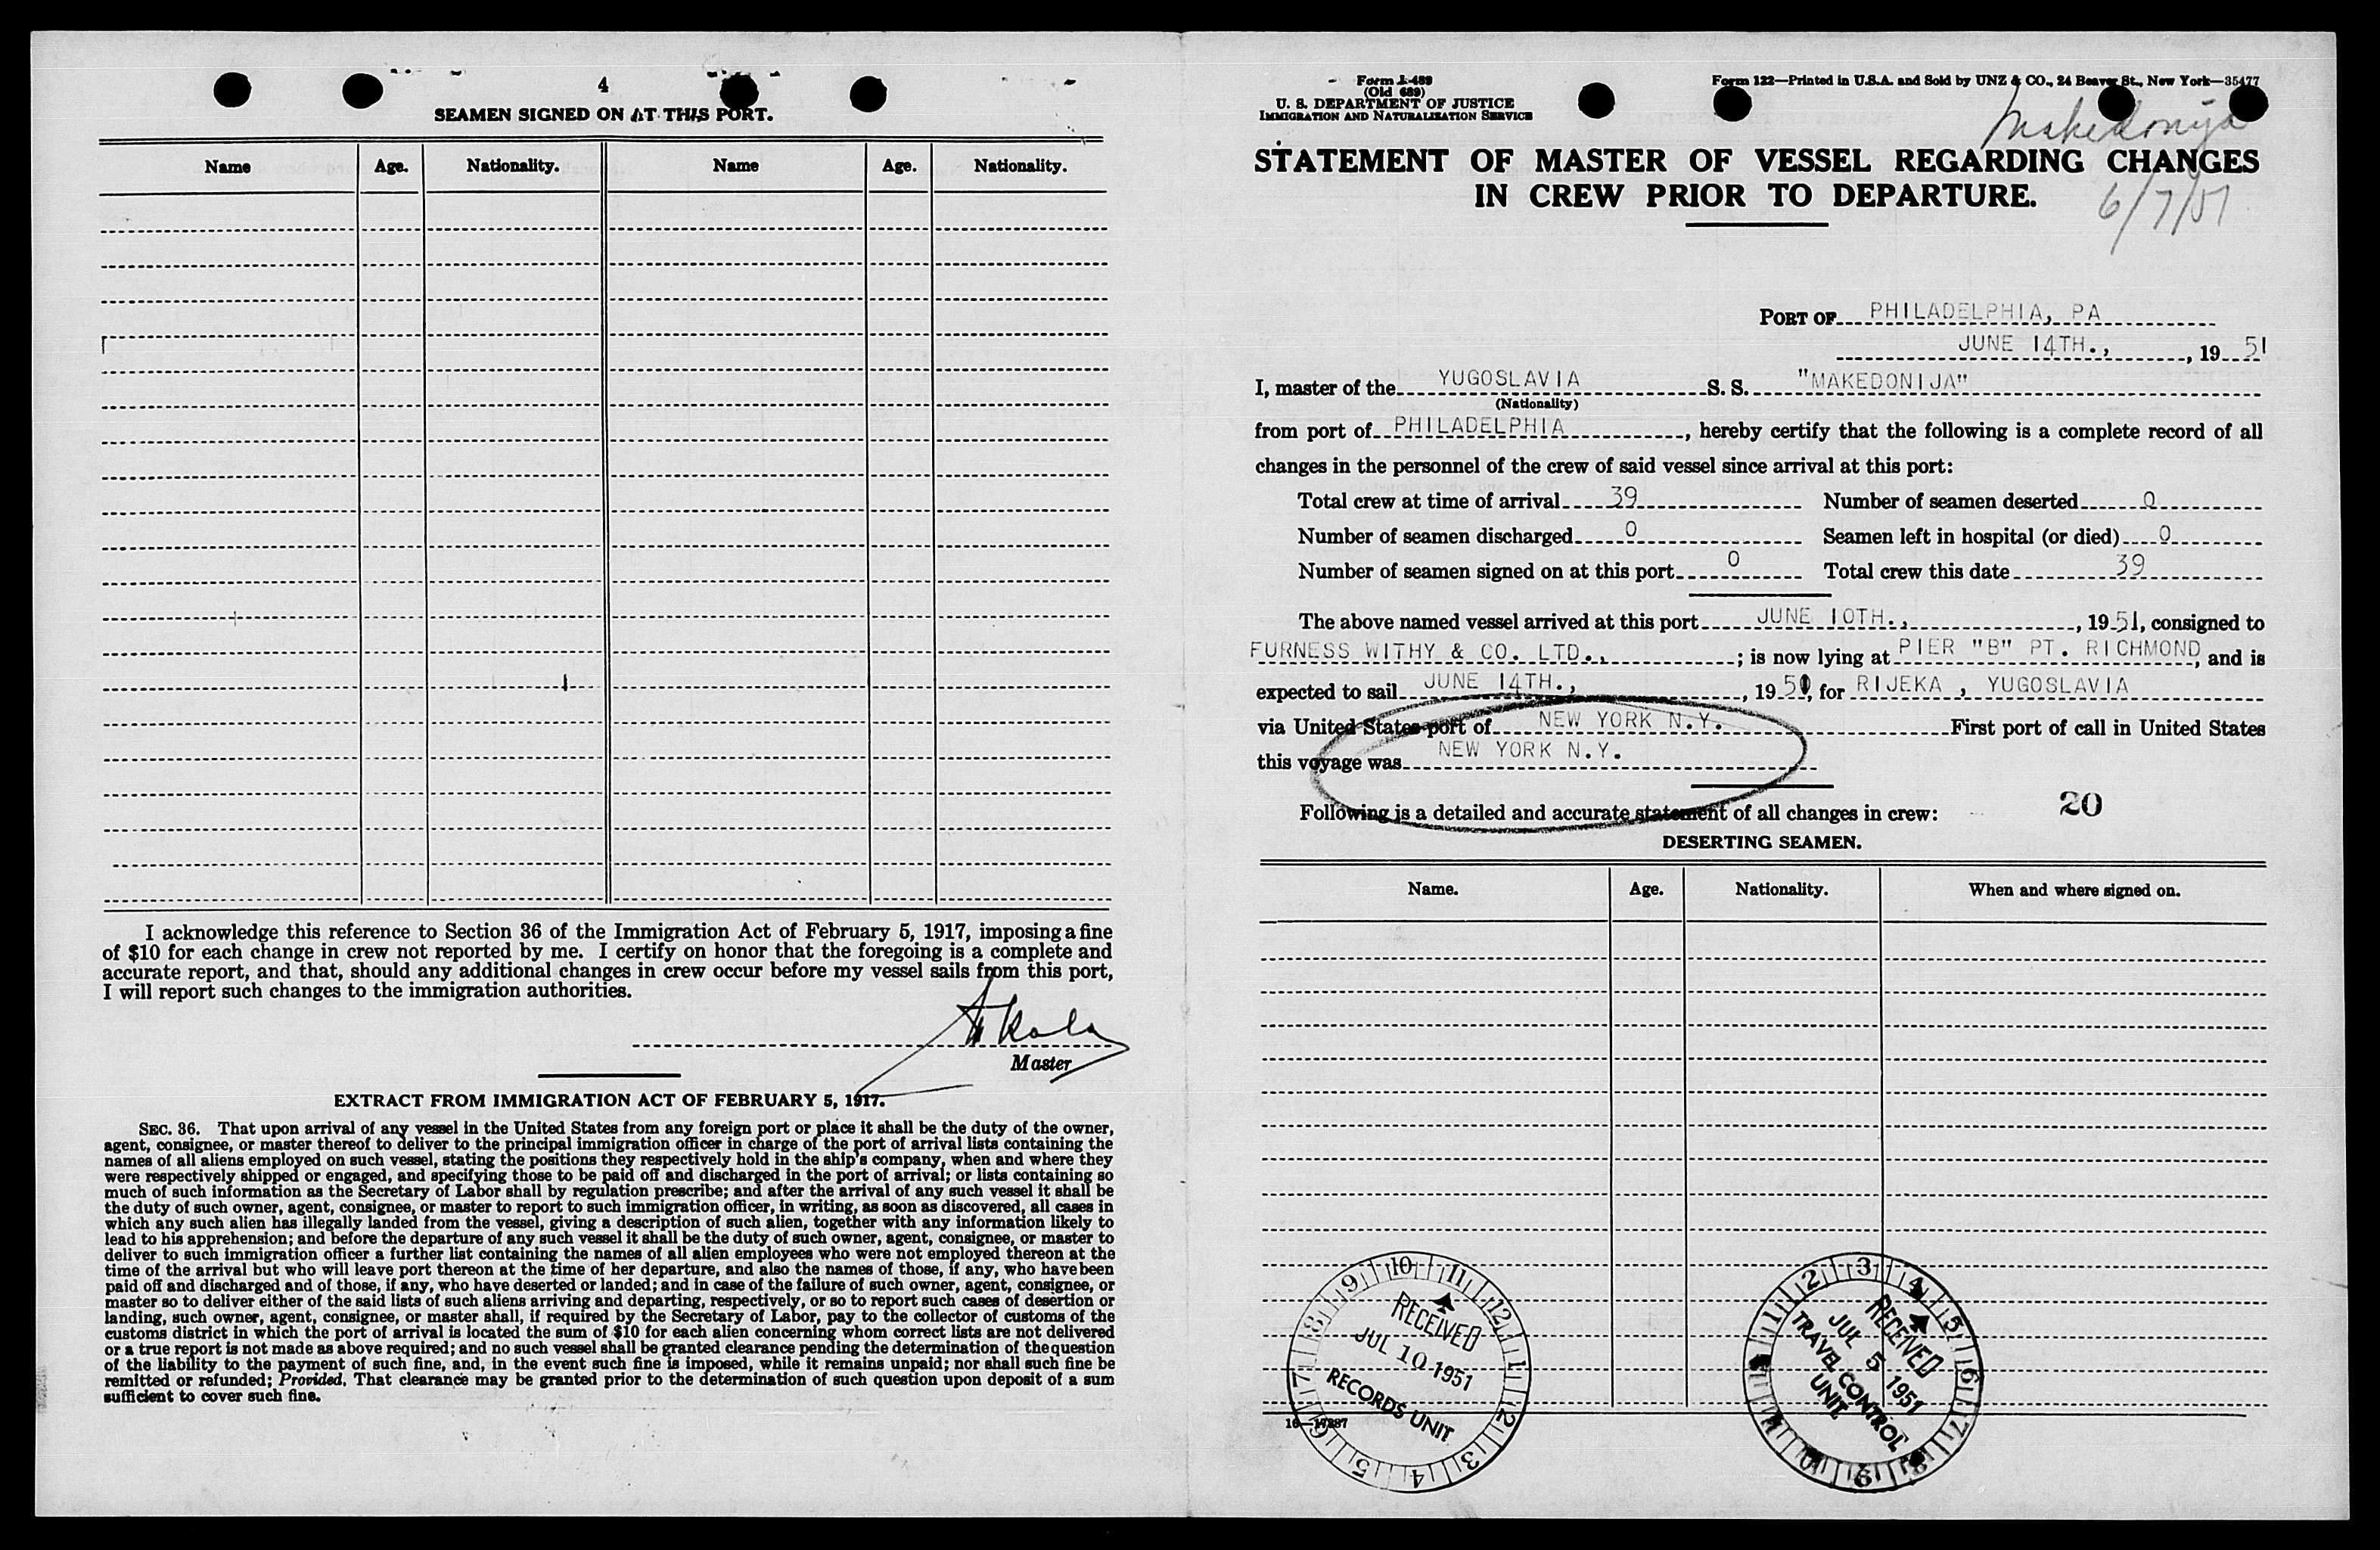 4
SEAMEN SIGNED ON AT THIS PORT.
Name Age. Nationality. Name Age. Nationality.
I acknowledge this reference to Section 36 of the Immigration Act of February 5, 1917, imposing a fine
of $10 for each change in crew not reported by me. I certify on honor that the foregoing is a complete and
accurate report, and that, should any additional changes in crew occur before my vessel sails from this port,
I will report such changes to the immigration authorities.
Master
EXTRACT FROM IMMIGRATION ACT OF FEBRUARY 5, 1917.
SEC. 36. That upon arrival of any vessel in the United States from any foreign port or place it shall be the duty of the owner,
agent, consignee, or master thereof to deliver to the principal immigration officer in charge of the port of arrival lists containing the
names of all aliens employed on such vessel, stating the positions they respectively hold in the ship's company, when and where they
were respectively shipped or engaged, and specifying those to be paid off and discharged in the port of arrival; or lists containing so
much of such information as the Secretary of Labor shall by regulation prescribe; and after the arrival of any such vessel it shall be
the duty of such owner, agent, consignee, or master to report to such immigration officer, in writing, as soon as discovered, all cases in
which any such alien has illegally landed from the vessel, giving a description of such alien, together with any information likely to
lead to his apprehension; and before the departure of any such vessel it shall be the duty of such owner, agent, consignee, or master to
deliver to such immigration officer a further list containing the names of all alien employees who were not employed thereon at the
time of the arrival but who will leave port thereon at the time of her departure, and also the names of those, if any, who have been
paid off and discharged and of those, if any, who have deserted or landed; and in case of the failure of such owner, agent, consignee, or
master so to deliver either of the said lists of such aliens arriving and departing, respectively, or so to report such cases of desertion or
landing, such owner, agent, consignee, or master shall, if required by the Secretary of Labor, pay to the collector of customs of the
customs district in which the port of arrival is located the sum of $10 for each alien concerning whom correct lists are not delivered
or a true report is not made as above required; and no such vessel shall be granted clearance pending the determination of the question
of the liability to the payment of such fine, and, in the event such fine is imposed, while it remains unpaid; nor shall such fine be
remitted or refunded; Provided, That clearance may be granted prior to the determination of such question upon deposit of a sum
sufficient to cover such fine.
Form I-489
(Old 689)
U. S. DEPARTMENT OF JUSTICE
IMMIGRATION AND NATURALIZATION SERVICE
Form 122—Printed in U.S.A. and Sold by UNZ & CO., 24 Beaver St., New York—35477
Makedonija
STATEMENT OF MASTER OF VESSEL REGARDING CHANGES
IN CREW PRIOR TO DEPARTURE.
6/7/51
PORT OF PHILADELPHIA, PA
JUNE 14TH., , 19 51
I, master of the YUGOSLAVIA S. S. "MAKEDONIJA"
(Nationality)
from port of PHILADELPHIA , hereby certify that the following is a complete record of all
changes in the personnel of the crew of said vessel since arrival at this port:
Total crew at time of arrival 39 Number of seamen deserted 0
Number of seamen discharged 0 Seamen left in hospital (or died) 0
Number of seamen signed on at this port 0 Total crew this date 39
The above named vessel arrived at this port JUNE 10TH., , 19 51, consigned to
FURNESS WITHY & CO. LTD., ; is now lying at PIER "B" PT. RICHMOND, and is
expected to sail JUNE 14TH., , 19 51, for RIJEKA , YUGOSLAVIA
via United States port of NEW YORK N.Y. First port of call in United States
this voyage was NEW YORK N.Y.
Following is a detailed and accurate statement of all changes in crew: 20
DESERTING SEAMEN.
Name. Age. Nationality. When and where signed on.
RECEIVED
JUL 10 1951
RECORDS UNIT
RECEIVED
JUL 5 1951
TRAVEL CONTROL
UNIT
16—17287